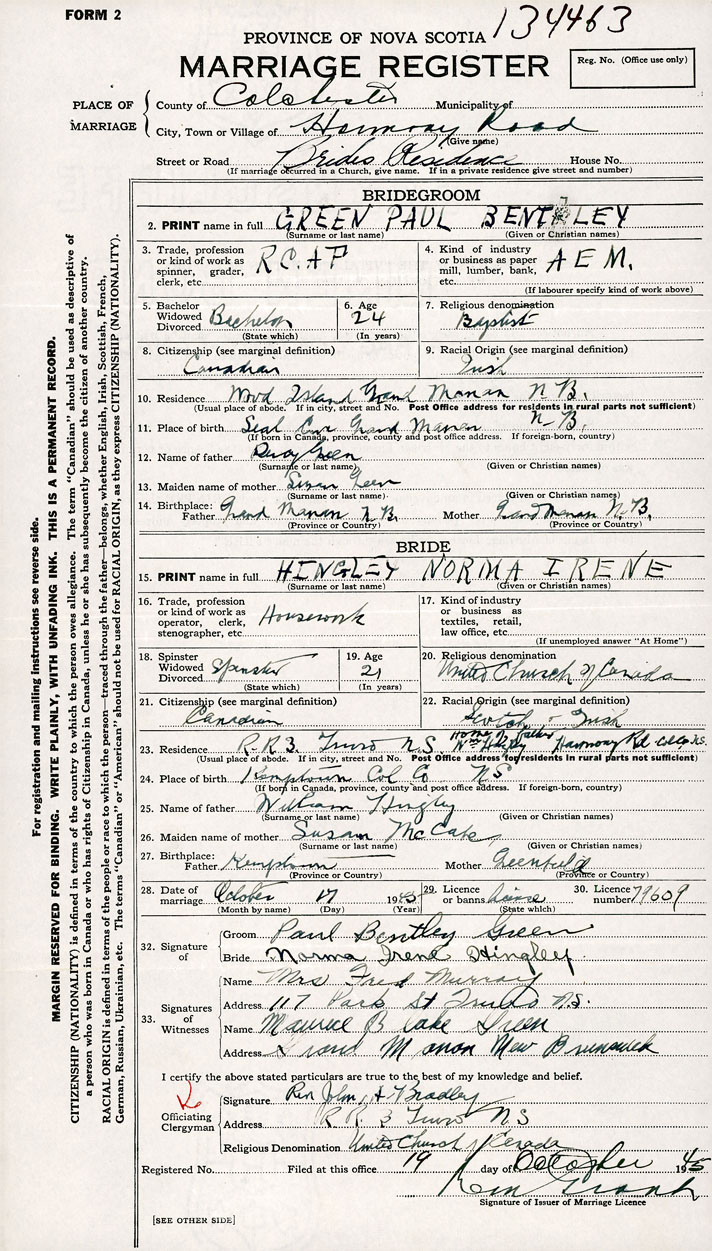 FORM 2
134463
PROVINCE OF NOVA SCOTIA
MARRIAGE REGISTER
Reg. No. (Office use only)
PLACE OF MARRIAGE
County of Colchester Municipality of
City, Town or Village of Harmony Road
(Give name)
Street or Road Brides Residence House No.
(If marriage occurred in a Church, give name. If in a private residence give street and number)
BRIDEGROOM
2. PRINT name in full GREEN PAUL BENTLEY
(Surname or last name) (Given or Christian names)
3. Trade, profession or kind of work as spinner, grader, clerk, etc. R.C.A.F
4. Kind of industry or business as paper mill, lumber, bank, etc. A E M.
(If labourer specify kind of work above)
5. Bachelor Widowed Divorced Bachelor (State which)
6. Age 24 (In years)
7. Religious denomination Baptist
8. Citizenship (see marginal definition) Canadian
9. Racial Origin (see marginal definition) Irish
10. Residence Wood Island Grand Manan N.B.
(Usual place of abode. If in city, street and No. Post Office address for residents in rural parts not sufficient)
11. Place of birth Seal Cove Grand Manan N-B.
(If born in Canada, province, county and post office address. If foreign-born, country)
12. Name of father Green
(Surname or last name) (Given or Christian names)
13. Maiden name of mother Susan Green
(Surname or last name) (Given or Christian names)
14. Birthplace: Father Grand Manan N.B. Mother Grand Manan N.B.
(Province or Country) (Province or Country)
BRIDE
15. PRINT name in full HINGLEY NORMA IRENE
(Surname or last name) (Given or Christian names)
16. Trade, profession or kind of work as operator, clerk, stenographer, etc. Housework
17. Kind of industry or business as textiles, retail, law office, etc.
(If unemployed answer "At Home")
18. Spinster Widowed Divorced Spinster (State which)
19. Age 21 (In years)
20. Religious denomination United Church of Canada
21. Citizenship (see marginal definition) Canadian
22. Racial Origin (see marginal definition) Scotch - Irish
Home of Father
23. Residence R.R 3. Truro N.S. Wm Hingley Harmony Rd Col Co N.S.
(Usual place of abode. If in city, street and No. Post Office address for residents in rural parts not sufficient)
24. Place of birth Kemptown Col Co NS
(If born in Canada, province, county and post office address. If foreign-born, country)
25. Name of father William Hingley
(Surname or last name) (Given or Christian names)
26. Maiden name of mother Susan McCabe
(Surname or last name) (Given or Christian names)
27. Birthplace: Father Kemptown Mother Greenfield
(Province or Country) (Province or Country)
28. Date of marriage October 17 1945
(Month by name) (Day) (Year)
29. Licence or banns licence (State which)
30. Licence number 79609
32. Signature of
Groom Paul Bentley Green
Bride Norma Irene Hingley
33. Signatures of Witnesses
Name Mrs Fred Murray
Address 117 Park St Truro N.S.
Name Maurice Green
Address Grand Manan New Brunswick
I certify the above stated particulars are true to the best of my knowledge and belief.
Officiating Clergyman
Signature Rev John H Bradley
Address R R 3 Truro NS
Religious Denomination United Church of Canada
Registered No. Filed at this office 19 day of October 1945
Signature of Issuer of Marriage Licence
[SEE OTHER SIDE]
For registration and mailing instructions see reverse side.
MARGIN RESERVED FOR BINDING. WRITE PLAINLY, WITH UNFADING INK. THIS IS A PERMANENT RECORD.
CITIZENSHIP (NATIONALITY) is defined in terms of the country to which the person owes allegiance. The term "Canadian" should be used as descriptive of
a person who was born in Canada or who has rights of Citizenship in Canada, unless he or she has subsequently become the citizen of another country.
RACIAL ORIGIN is defined in terms of the people or race to which the person—traced through the father—belongs, whether English, Irish, Scottish, French,
German, Russian, Ukrainian, etc. The terms "Canadian" or "American" should not be used for RACIAL ORIGIN, as they express CITIZENSHIP (NATIONALITY).